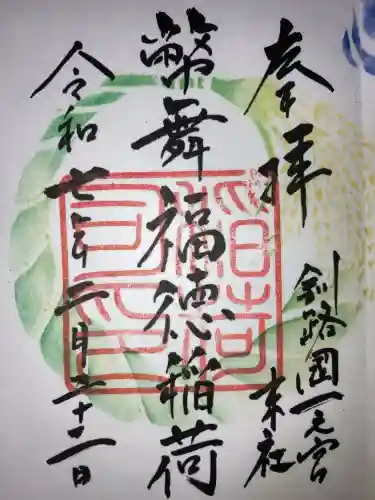 奉拝
釧路國一之宮
末社
幣舞福徳稲荷
令和七年二月二十二日